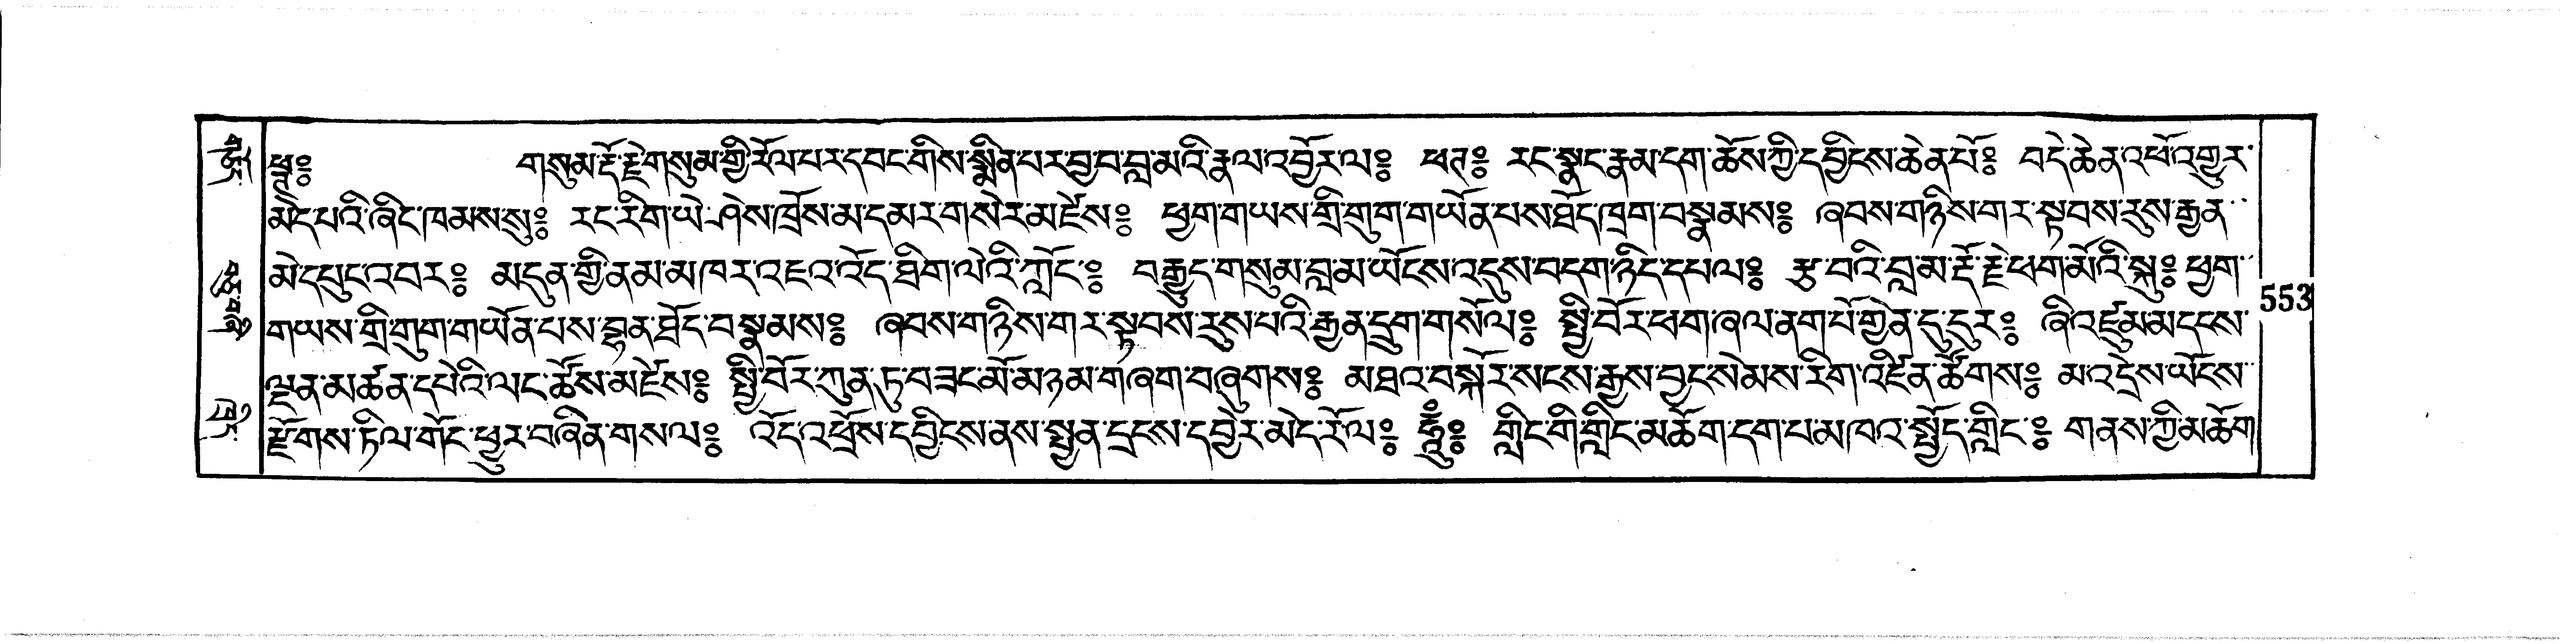 ཕྲཿ གསུམ་རྡོ་རྗེ་གསུམ་གྱི་རོལ་པར་དབང་གིས་སྨིན་པར་བྱ་བ་བླ་མའི་རྣལ་འབྱོར་ལ༔ ཕཊ༔ རང་སྣང་རྣམ་དག་ཆོས་ཀྱི་དབྱིངས་ཆེན་པོ༔ བདེ་ཆེན་འཕོ་འགྱུར་
མེད་པའི་ཞིང་ཁམས་སུ༔ རང་རིག་ཡེ་ཤེས་ཁྲོས་མ་དམར་གསེར་མཛེས༔ ཕྱག་གཡས་གྲི་གུག་གཡོན་པས་ཐོད་ཁྲག་བསྣམས༔ ཞབས་གཉིས་གར་སྟབས་རུས་རྒྱན་
མེ་དཔུང་འབར༔ མདུན་གྱི་ནམ་མཁར་འཇའ་འོད་ཐིག་ལེའི་ཀློང་༔ བརྒྱུད་གསུམ་བླ་མ་ཡོངས་འདུས་བདག་ཉིད་དཔལ༔ རྩ་བའི་བླ་མ་རྡོ་རྗེ་ཕག་མོའི་སྐུ༔ ཕྱག་
གཡས་གྲི་གུག་གཡོན་པས་བྷན་ཐོད་བསྣམས༔ ཞབས་གཉིས་གར་སྟབས་རུས་པའི་རྒྱན་དྲུག་གསོལ༔ སྤྱི་བོར་ཕག་ཞལ་ནག་པོ་གྱེན་དུ་ངུར༔ ཞི་འཛུམ་མདངས་
ལྡན་མཚན་དཔེའི་ལང་ཚོས་མཛེས༔ སྤྱི་བོར་ཀུན་ཏུ་བཟང་མོ་མཉམ་གཞག་བཞུགས༔ མཐའ་བསྐོར་སངས་རྒྱས་བྱང་སེམས་རིག་འཛིན་ཚོགས༔ མ་འདྲེས་ཡོངས་
རྫོགས་ཏིལ་གོང་ཕྱུར་བཞིན་གསལ༔ འོད་འཕྲོས་དབྱིངས་ནས་སྤྱན་དྲངས་དབྱེར་མེད་རོལ༔ ཧཱུྃ༔ གླིང་གི་གླིང་མཆོག་དག་པ་མཁའ་སྤྱོད་གླིང་༔ གནས་ཀྱི་མཆོག
553